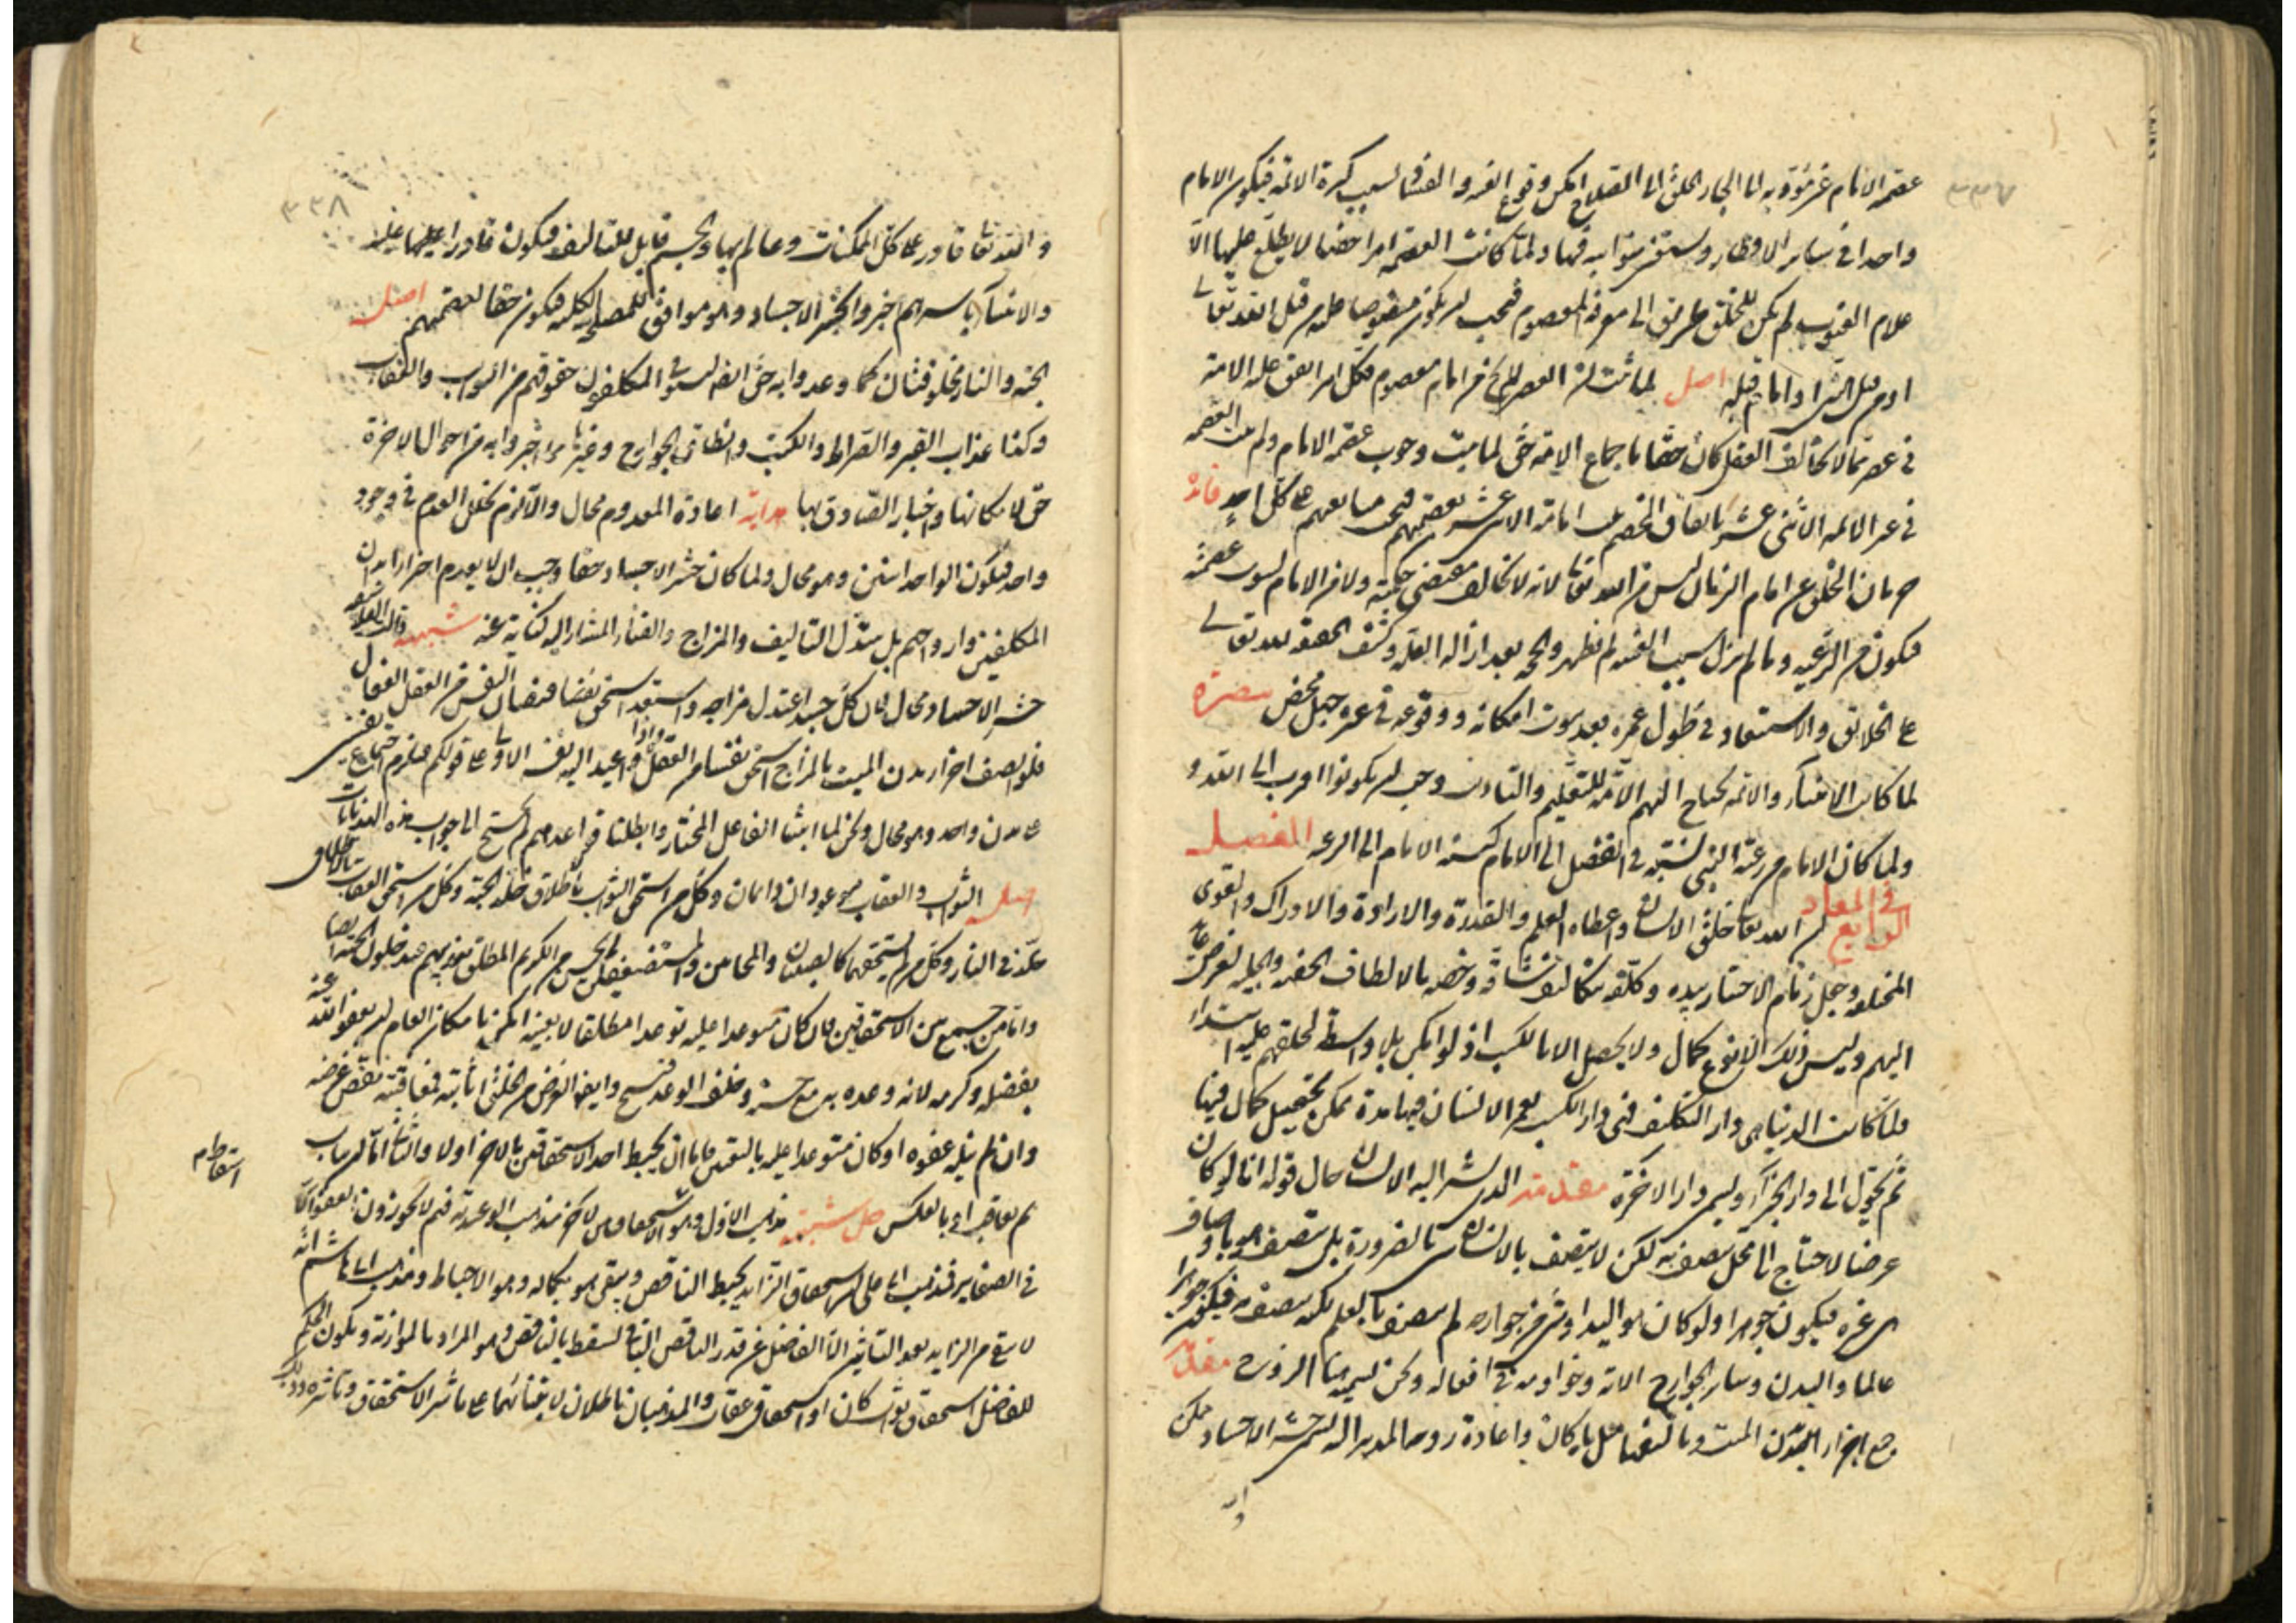 ٣٣٧
عصمة الامام غير مؤدية الى الجاء الخلق الى الصلاح امكن وقوع الفتنة والفساد بسبب كثرة الائمة فيكون الامام
واحدا فى سائر الاقطار ويستعين بنوابه فيها ولما كانت العصمة امرا خفيا لا يطلع عليها الا
علام الغيوب لم يكن للخلق طريق الى معرفة المعصوم فيجب ان يكون منصوصا عليه من قبل الله تعالى
او من قبل نبى او امام قبله اصل لما ثبت ان العصر لا يخ من امام معصوم فكل امر اتفق عليه الامة
فى عصر مما لا يخالف العقل كان حقا باجماع الامة حق لما ثبت وجوب عصمة الامام ولم العصمة
فى غير الائمة الاثنى عشر باتفاق الخصم امامة الاثنى عشر بعصمتهم فيجب متابعتهم على كل احد فائدة
حرمان الخلق عن امام الزمان ليس من الله تعالى لانه لا يخالف مقتضى حكمته ولا من الامام لثبوت عصمته
فيكون من الرعية وما لم يزل سبب الغيبة لم يظهر والحجة بعد ازالة العلة وكشف الحقيقة لله تعالى
على الخلائق والاستبعاد فى طول عمره بعد ثبوت امكانه ووقوعه فى غيره جهل محض تبصرة
لما كانت الانبياء والائمة يحتاج اليهم الامة للتعليم والتاديب وجب ان يكونوا اقرب الى الله و
ولما كان الامام من رعية النبى نسبته فى الفضل الى الامام كنسبة الامام الى الرعية الفصل
الرابع فى المعاد ان الله تعالى خلق الانسان واعطاه العلم والقدرة والارادة والادراك والقوى
المختلفة وجعل زمام الاختيار بيده وكلفه بتكاليف شاقة وخصه بالالطاف الخفية والجلية لغرض عائد
اليهم وليس ذلك الا نوع كمال ولا يحصل الا بالكسب اذ لو امكن بلا واسطة لخلقهم عليه ابتداء
ولما كانت الدنيا هى دار التكليف فهى دار الكسب يعمر الانسان فيها مدة يمكن تحصيل كمال فيها
ثم يحول الى دار الجزآء ويسمى دار الآخرة مقدمة الذى يشير اليه الانسان حال قوله انا لو كان
عرضا لاحتاج الى محل يتصف به لكن لا يتصف بالانسان شى بالضرورة بل يتصف هو باوصاف
هى غيره فيكون جوهرا ولو كان هو البدن او شى من جوارحه لم يتصف بالعلم لكنه يتصف به فيكون جوهرا
عالما والبدن وسائر الجوارح آلاته وخوادمه فى افعاله ونحن نسميه هنا الروح مقدمة
جمع اجزاء البدن الميت وتاليفها مثل ما كان واعادة روحه المدبرة اليه يسمى حشر الاجساد وهو ممكن
٣٣٨
والله تعالى قادر على كل الممكنات وعالم بها والجسم قابل للتاليف فيكون قادرا عليها
والانبياء باسرهم اخبروا بحشر الاجساد وهو موافق للمصلحة الكلية فيكون حقا لعصمتهم اصل
الجنة والنار مخلوقتان كما وعدوا به حق ايضا ليستوفى المكلفون حقوقهم من الثواب والعقاب
وكذا عذاب القبر والصراط والكتب وانطاق الجوارح وغيرها مما اخبروا به من احوال الآخرة
حق لامكانها واخبار الصادق بها هداية اعادة المعدوم محال والا لزم تخلل العدم فى وجود
واحد فيكون الواحد اثنين وهو محال ولما كان حشر الاجساد حقا وجب ان لا يعدم اجزاء ابدان
المكلفين وارواحهم بل يتبدل التاليف والمزاج والفناء المشار اليه كناية عنه شبهة قالت الفلاسفة
حشر الاجساد محال لان كل جسد اعتدل مزاجه واستعد استحق فيضان النفس من العقل الفعال
فلو اتصف اجزاء بدن الميت بالمزاج استحق نفسا من العقل واذا اعيد اليه نفسه الاولى على قولكم فيلزم اجتماع نفسين
على بدن واحد وهو محال ولكن لما اثبتنا الفاعل المختار وابطلنا قواعدهم لم نحتج الى جواب هذه الهذيانات
اصل الثواب والعقاب الموعودان دائمان وكل من استحق الثواب باطلاق خلد الجنة وكل من استحق العقاب بالاطلاق
خلد فى النار وكل من لم يستحقهما كالصبيان والمجانين والمستضعفين لم يحسن من الكريم المطلق تعذيبهم فيدخلون الجنة ايضا
واما من جمع بين الاستحقاقين فان كان متوعدا عليه توعدا مطلقا لا بعينه امكن بامكان العام ان يعفو الله عنه
بفضله وكرمه لانه وعده به مع حسنه وخلف الوعد قبيح وايضا الغرض من الخلق اثابته فمعاقبته نقض غرضه
وان لم ينله عفوه او كان متوعدا عليه بالتعيين فاما ان يحبط احد الاستحقاقين بالآخر اولا والثانى اما ان يثاب
ثم يعاقب او بالعكس حل شبهة مذهب الاول وهو اسقاط الاستحقاقين للآخر مذهب الوعيدية فهم لا يجوزون العفو الا
فى الصغاير فذهب ابو على ان الاستحقاق الزايد يحبط الناقص ويبقى هو بكماله وهو الاحباط وذهب ابنه ابو هاشم انه
لا يبقى من الزايد بعد التاثير الا الفاضل عن قدر الناقص الثانى ليسقط بالناقص وهو المراد بالموازنة ويكون الحكم
للفاضل استحقاق ثواب كان او استحقاق عقاب والمذهبان باطلان لابتنائهما على تاثير الاستحقاق وتاثره وذلك
اسقاط